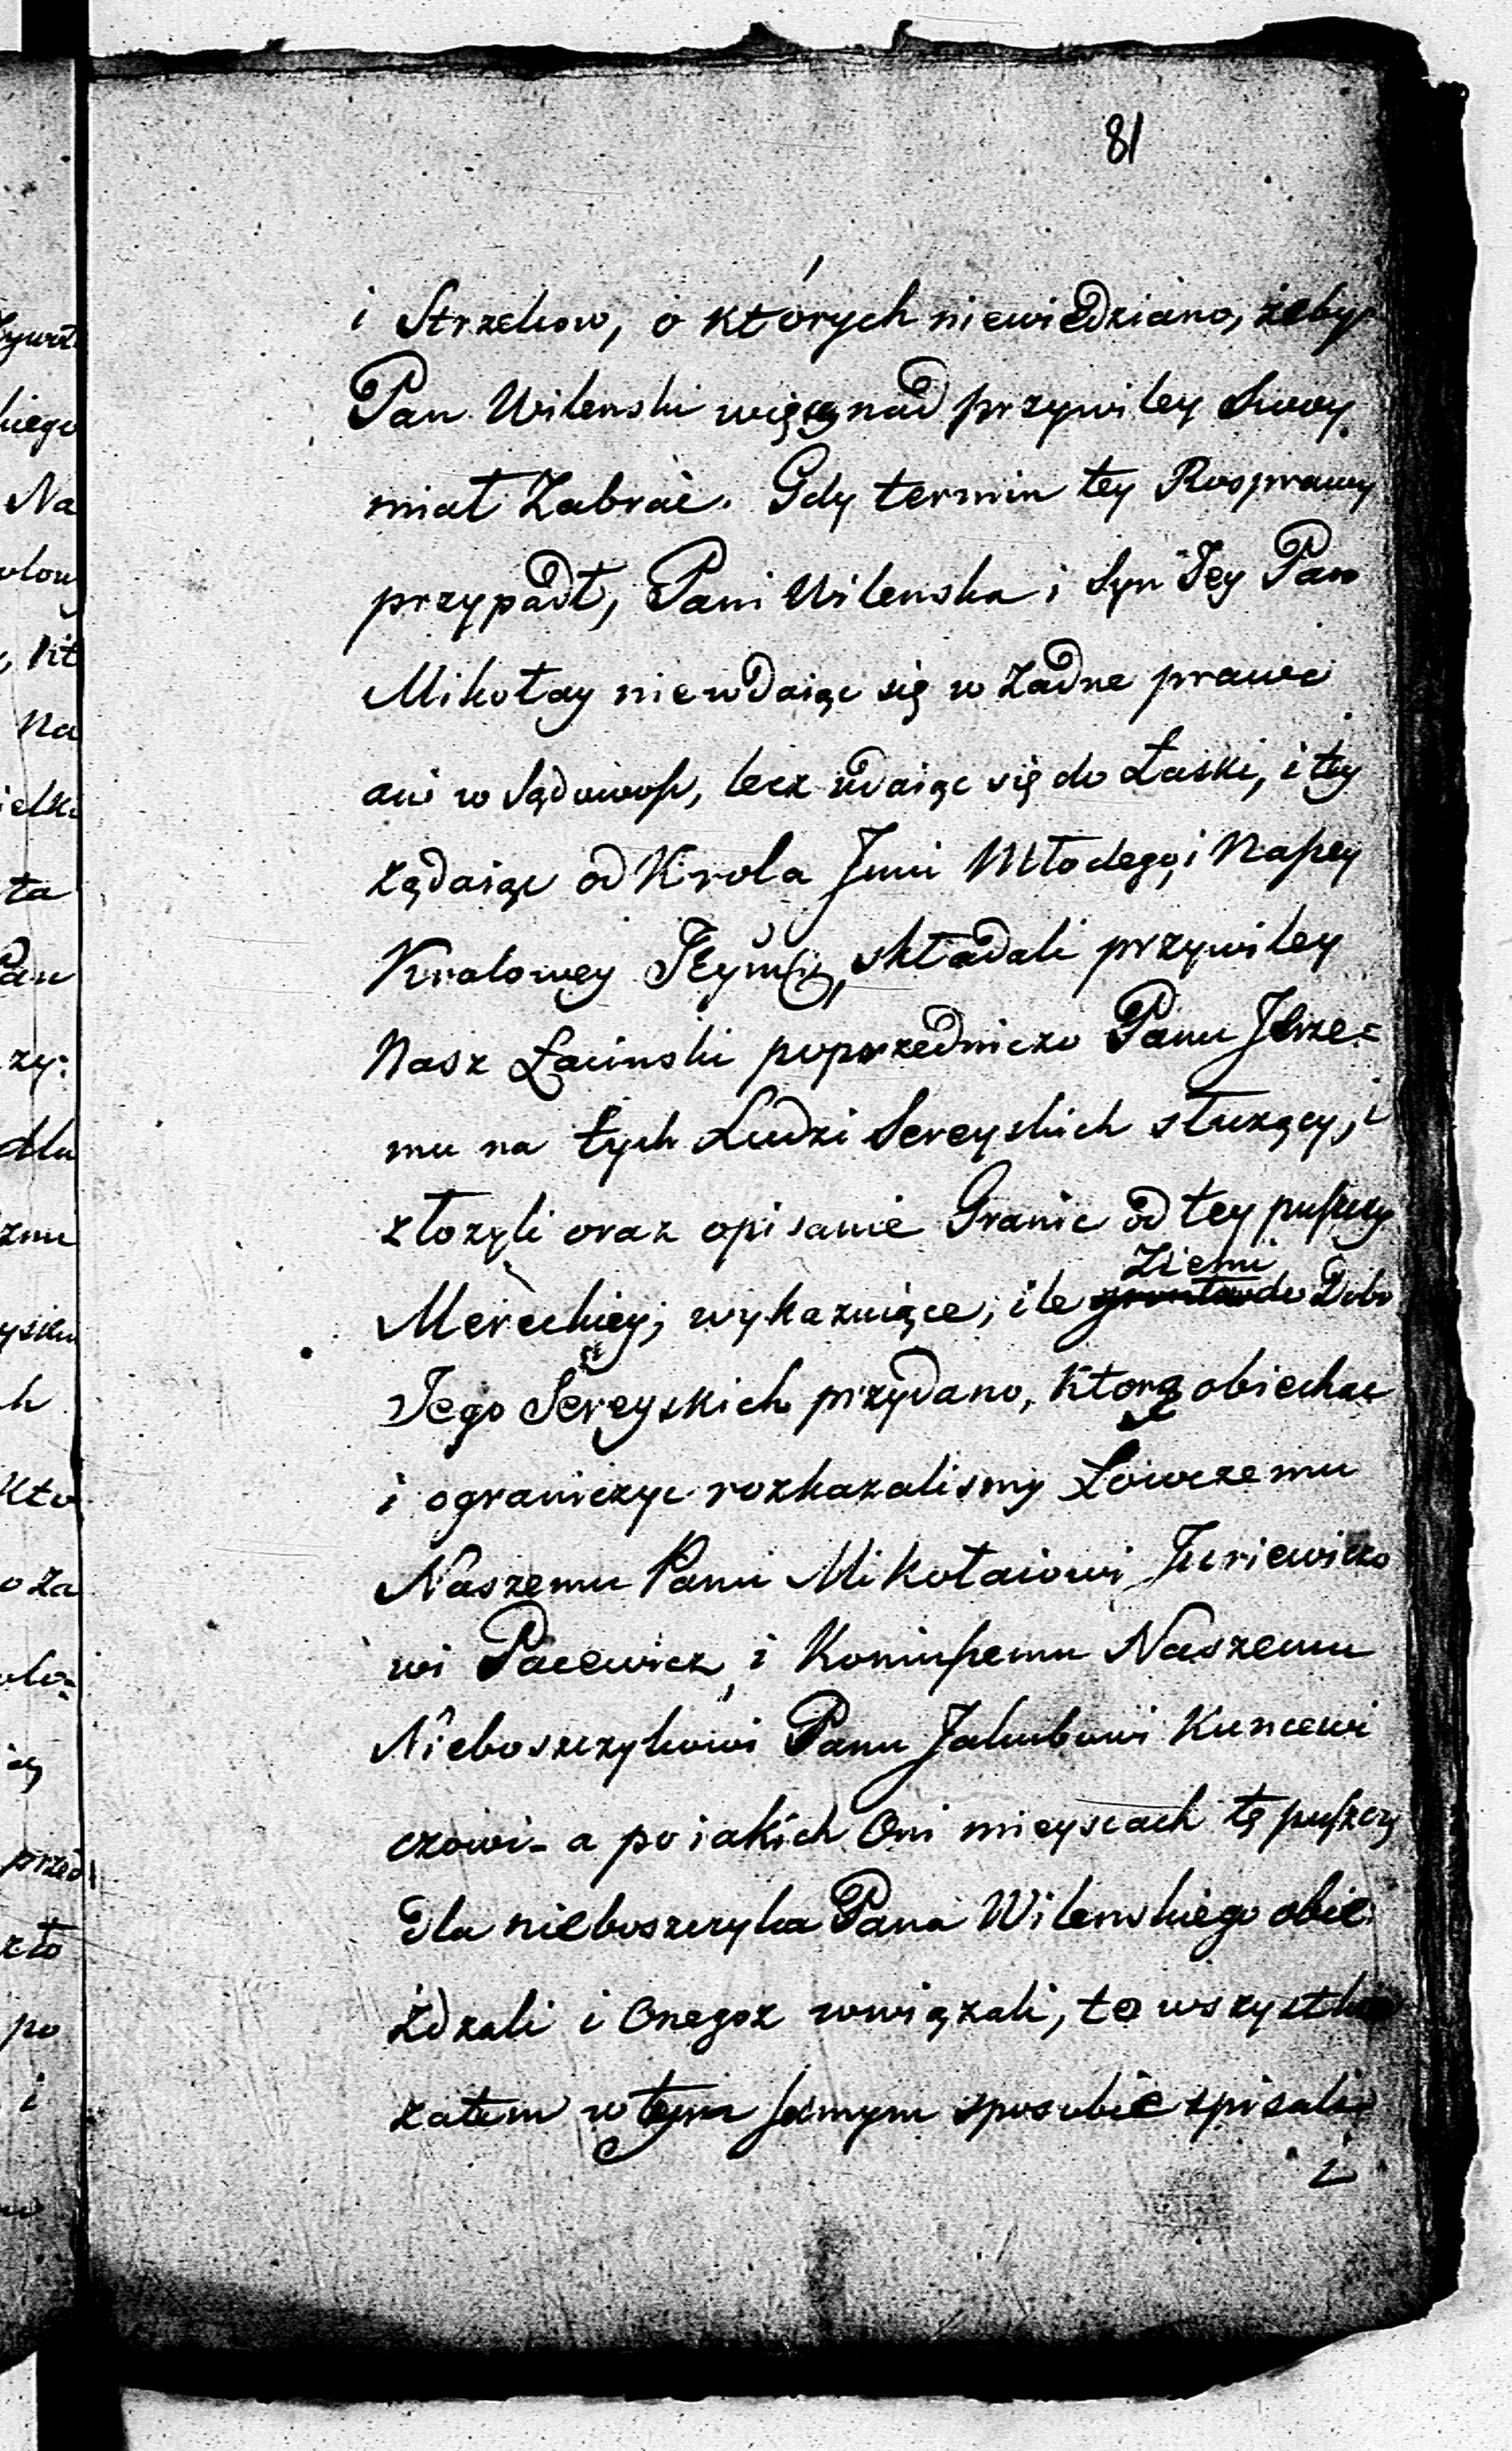 81
i Strzelcow, o których niewiedziano, żeby
Pan Wilenski więcey nad przywiley swoy
miał Zabrać. Gdy termin tey Rosprawy
przypadł, Pani Wilenska i Syn Jey Pan
Mikołay niewdaiąc się w żadne prawo
ani w Sądowość, lecz udaiąc się do Łaski, i tey
żądaiąc od Krola Jmci Młodego, i Naszey
Krolowey Jeymci, składali przywiley
Nasz Łacinski poprzedniczo Panu Jerze=
mu na tych Ludzi Sereyskich służący, i
złożyli oraz opisanie Granic od tey puszczy
Mereckiey, wykazuiące, ile Ziemi do Dobr
Jego Sereyskich przydano, którą obiechac
i ograniczyc rozkazalismy Łowczemu
Naszemu Panu Mikołaiowi Juriewiczo
wi Pacewicz, i Koniuszemu Naszemu
Nieboszczykowi Panu Jakubowi Kuncewi
czowi - a po iakich Oni mieyscach tę puszczę
Dla nieboszczyka Pana Wilenskiego obie
żdzali i Onegoż wwiązali, to wszystko
zatem w tym samym sposobie spisali
i